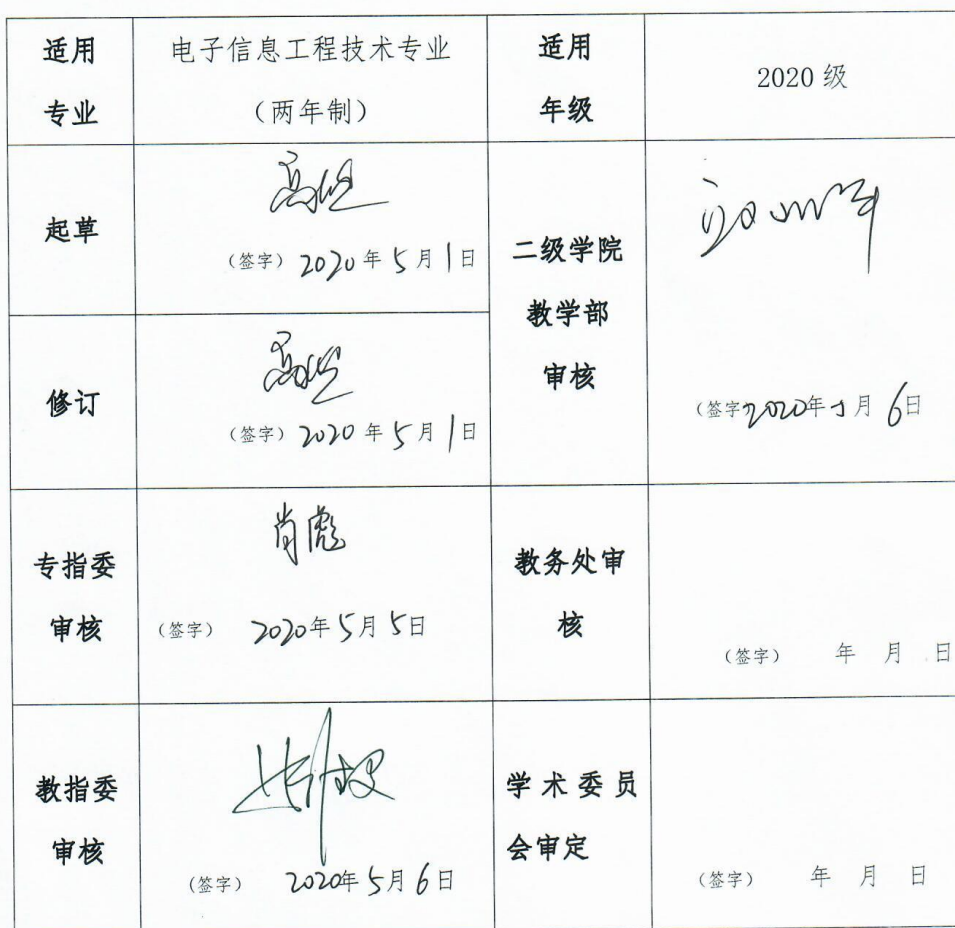 适用
专业
电子信息工程技术专业
（两年制）
适用
年级
2020 级
起草
（签字） 2020 年 5 月 1 日
二级学院
教学部
审核
（签字） 2020年 5 月 6日
修订
（签字） 2020 年 5 月 1 日
专指委
审核
肖彪
（签字） 2020年 5月 5日
教务处审
核
（签字） 年 月 日
教指委
审核
（签字） 2020年 5月 6日
学术委员
会审定
（签字） 年 月 日